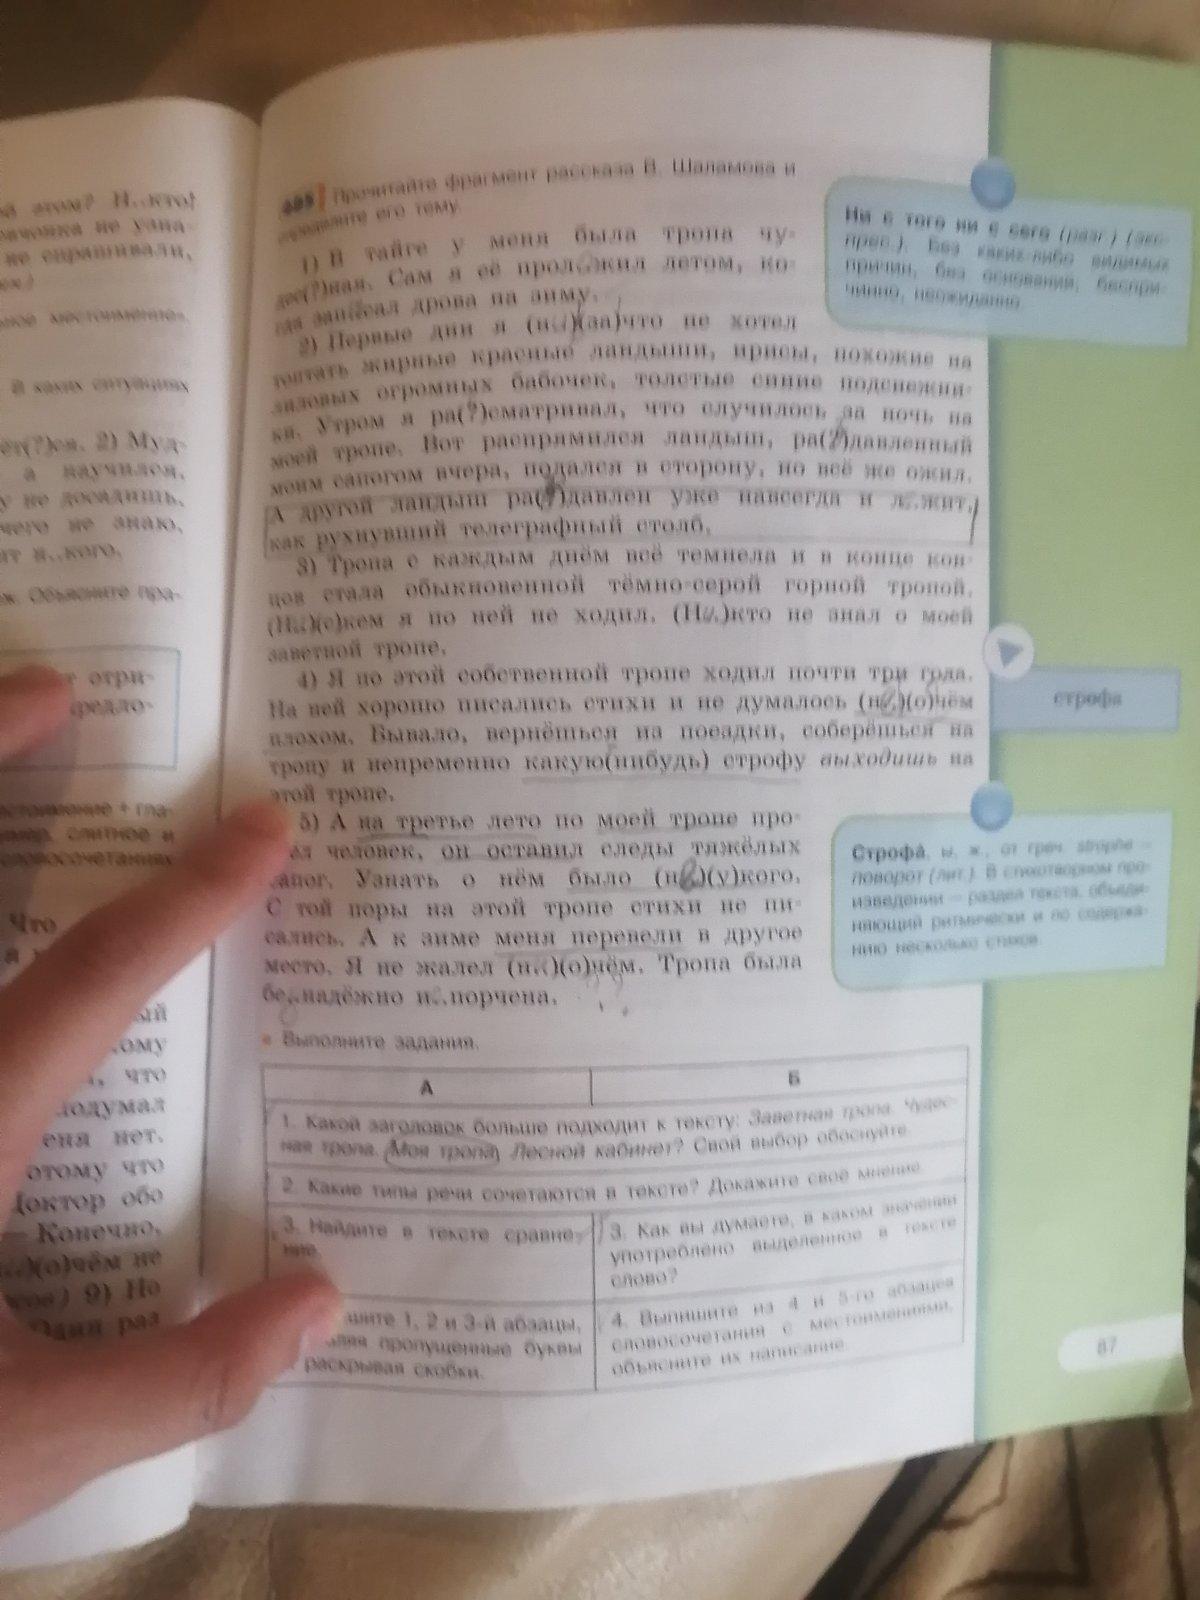 й этом? Н..кто
не узна-
не спрашивали,
ное местоимение».
В каких ситуациях
ёт(?)ся. 2) Муд-
а научился,
у не досадишь,
чего не знаю,
ит н..кого.
ж. Объясните пра-
отри-
предло-
местоимение + гла-
слитное и
словосочетаниях
Что
ый
кому
что
подумал
меня нет.
потому что
Доктор обо
— Конечно,
)(о)чём не
9) Но
Один раз
Прочитайте фрагмент рассказа В. Шаламова и
определите его тему.
1) В тайге у меня была тропа чу-
дес(?)ная. Сам я её прол..жил летом, ко-
гда запасал дрова на зиму.
2) Первые дни я (н..)(за)что не хотел
топтать жирные красные ландыши, ирисы, похожие на
лиловых огромных бабочек, толстые синие подснежни-
ки. Утром я ра(?)сматривал, что случилось за ночь на
моей тропе. Вот распрямился ландыш, ра(?)давленный
моим сапогом вчера, подался в сторону, но всё же ожил.
А другой ландыш ра(?)давлен уже навсегда и л..жит,
как рухнувший телеграфный столб.
3) Тропа с каждым днём всё темнела и в конце кон-
цов стала обыкновенной тёмно-серой горной тропой.
(Н..)(с)кем я по ней не ходил. (Н..)кто не знал о моей
заветной тропе.
4) Я по этой собственной тропе ходил почти три года.
На ней хорошо писались стихи и не думалось (н..)(о)чём
плохом. Бывало, вернёшься из поездки, соберёшься на
тропу и непременно какую(нибудь) строфу выходишь на
этой тропе.
5) А на третье лето по моей тропе про-
шёл человек, он оставил следы тяжёлых
сапог. Узнать о нём было (н..)(у)кого.
С той поры на этой тропе стихи не пи-
сались. А к зиме меня перевели в другое
место. Я не жалел (н..)(о)чём. Тропа была
бе..надёжно и..порчена.
• Выполните задания.
А
Б
1. Какой заголовок больше подходит к тексту: Заветная тропа. Чудес-
ная тропа. Моя тропа. Лесной кабинет? Свой выбор обоснуйте.
2. Какие типы речи сочетаются в тексте? Докажите своё мнение.
3. Найдите в тексте сравне-
ние.
3. Как вы думаете, в каком значении
употреблено выделенное в тексте
слово?
шите 1, 2 и 3-й абзацы,
пропущенные буквы
раскрывая скобки.
4. Выпишите из 4 и 5-го абзацев
словосочетания с местоимениями,
объясните их написание.
Ни с того ни с сего (разг.) (экс-
прес.). Без каких-либо видимых
причин, без основания, беспри-
чинно, неожиданно
строфа
Строфа́, ы, ж., от греч. strophe –
поворот (лит.). В стихотворном про-
изведении – раздел текста, объеди-
няющий ритмически и по содержа-
нию несколько стихов.
87